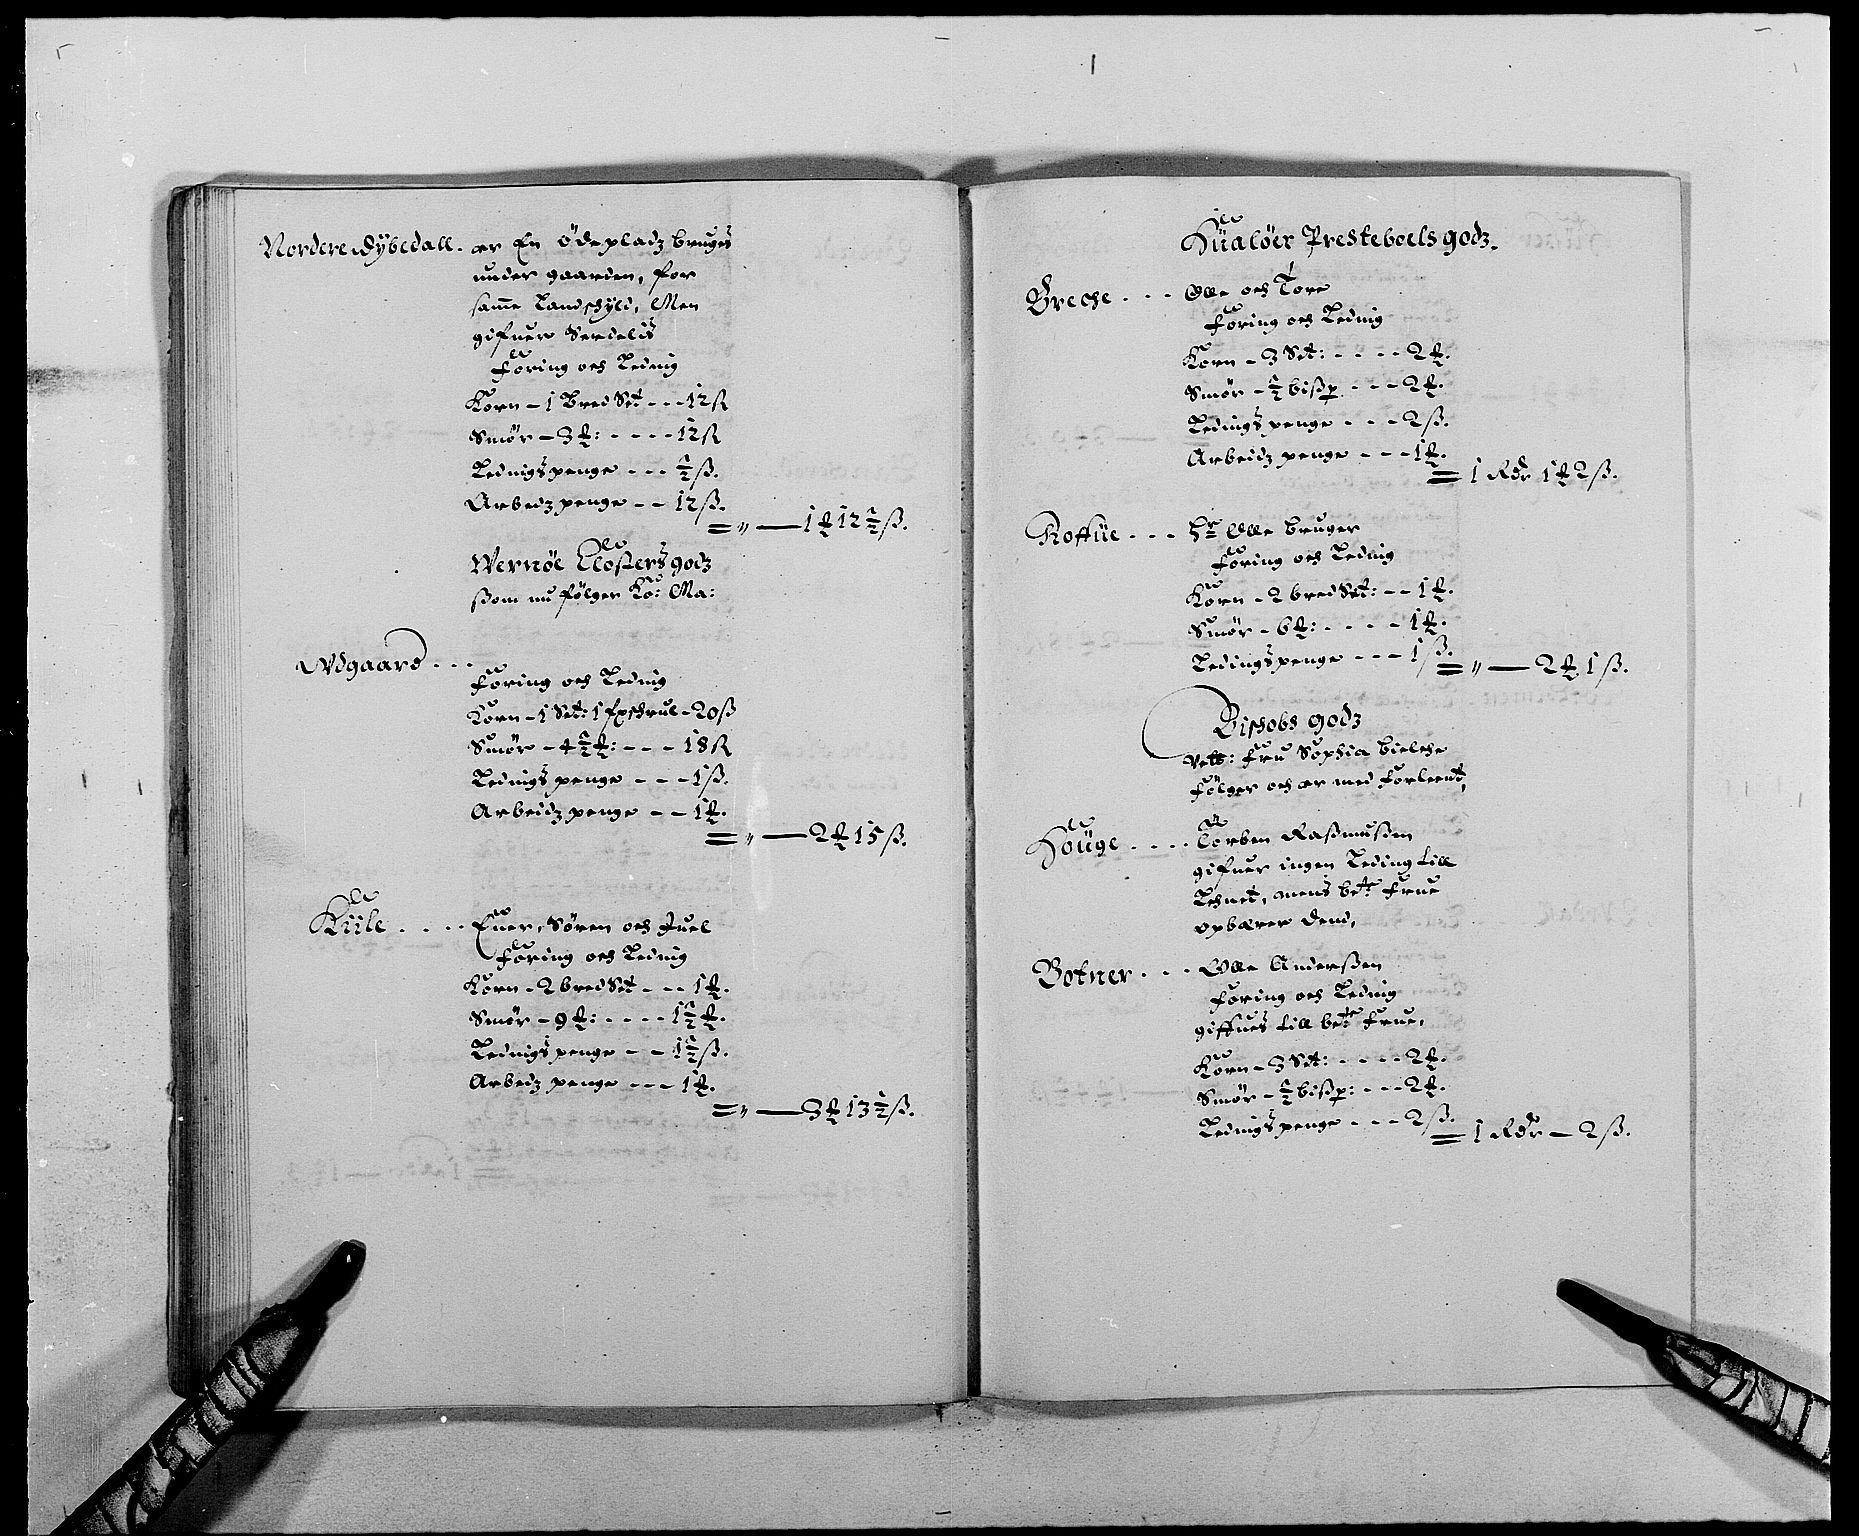 Nordere Dÿbedall. er En ödepladz bruges
under gaarden, for
samme Landschyld, Men
gifuer Serdelis
Foring och Leding
Korn - 1 Bred Set - - - 12 ß
Smör - 3 ℔: - - - - 12 ß
Ledings penge - - - ½ ß.
Arbedz penge - - 12 ß.
= „ — 1 ℔ 12 ½ ß.
Wernöe Closters godz
ßom nu fölger Ko: Ma:
Odgaard . . .
Foring och Leding
Korn - 1 Set: 1 - 20 ß
Smör - 4 ½ ℔: - - - 18 ß
Ledings penge - - - 1 ß.
Arbeidz penge - - 1 ℔.
= „ — 2 ℔ 15 ß.
Kiile . . . . Euer, Sören och Juel
Foring och Leding
Korn - 2 bred Set - - - 1 ℔.
Smör - 9 ℔: - - - - 1 ½ ℔.
Ledings penge - - 1 ½ ß.
Arbedz penge - - - 1 ℔.
= „ — 3 ℔ 13 ½ ß.
Hüalöer Presteboels godz.
Breche . . . Olle och Tore
Foring och Leding
Korn - 3 Set: - - - - 2 ℔.
Smör - ½ bißp - - - 2 ℔.
Ledings penge - - - 2 ß.
Arbeidz penge - - - 1 ℔.
= 1 Rdr 1 ℔ 2 ß.
Roffüe . . . Hr Olle bruger
Foring och Leding
Korn - 2 bred Set: - - 1 ℔.
Smör - 6 ℔: - - - - 1 ℔.
Ledings penge - - - 1 ß.
= „ — 2 ℔ 1 ß.
Bischobs godz
Velb: Fru Sophia bielche
Fölger och er med Forleent,
Houge . . . . Torben Raßmußen
gifuer ingen Leding till
Lehnet, mens bete Frue
opbærer dend,
Botner . . . Olle Anderßen
Foring och Leding
giffues till bete Frue,
Korn - 3 Set: - - - - 2 ℔.
Smör - ½ bißp: - - - 2 ℔.
Ledings penge - - - 2 ß.
= 1 Rdr — 2 ß.